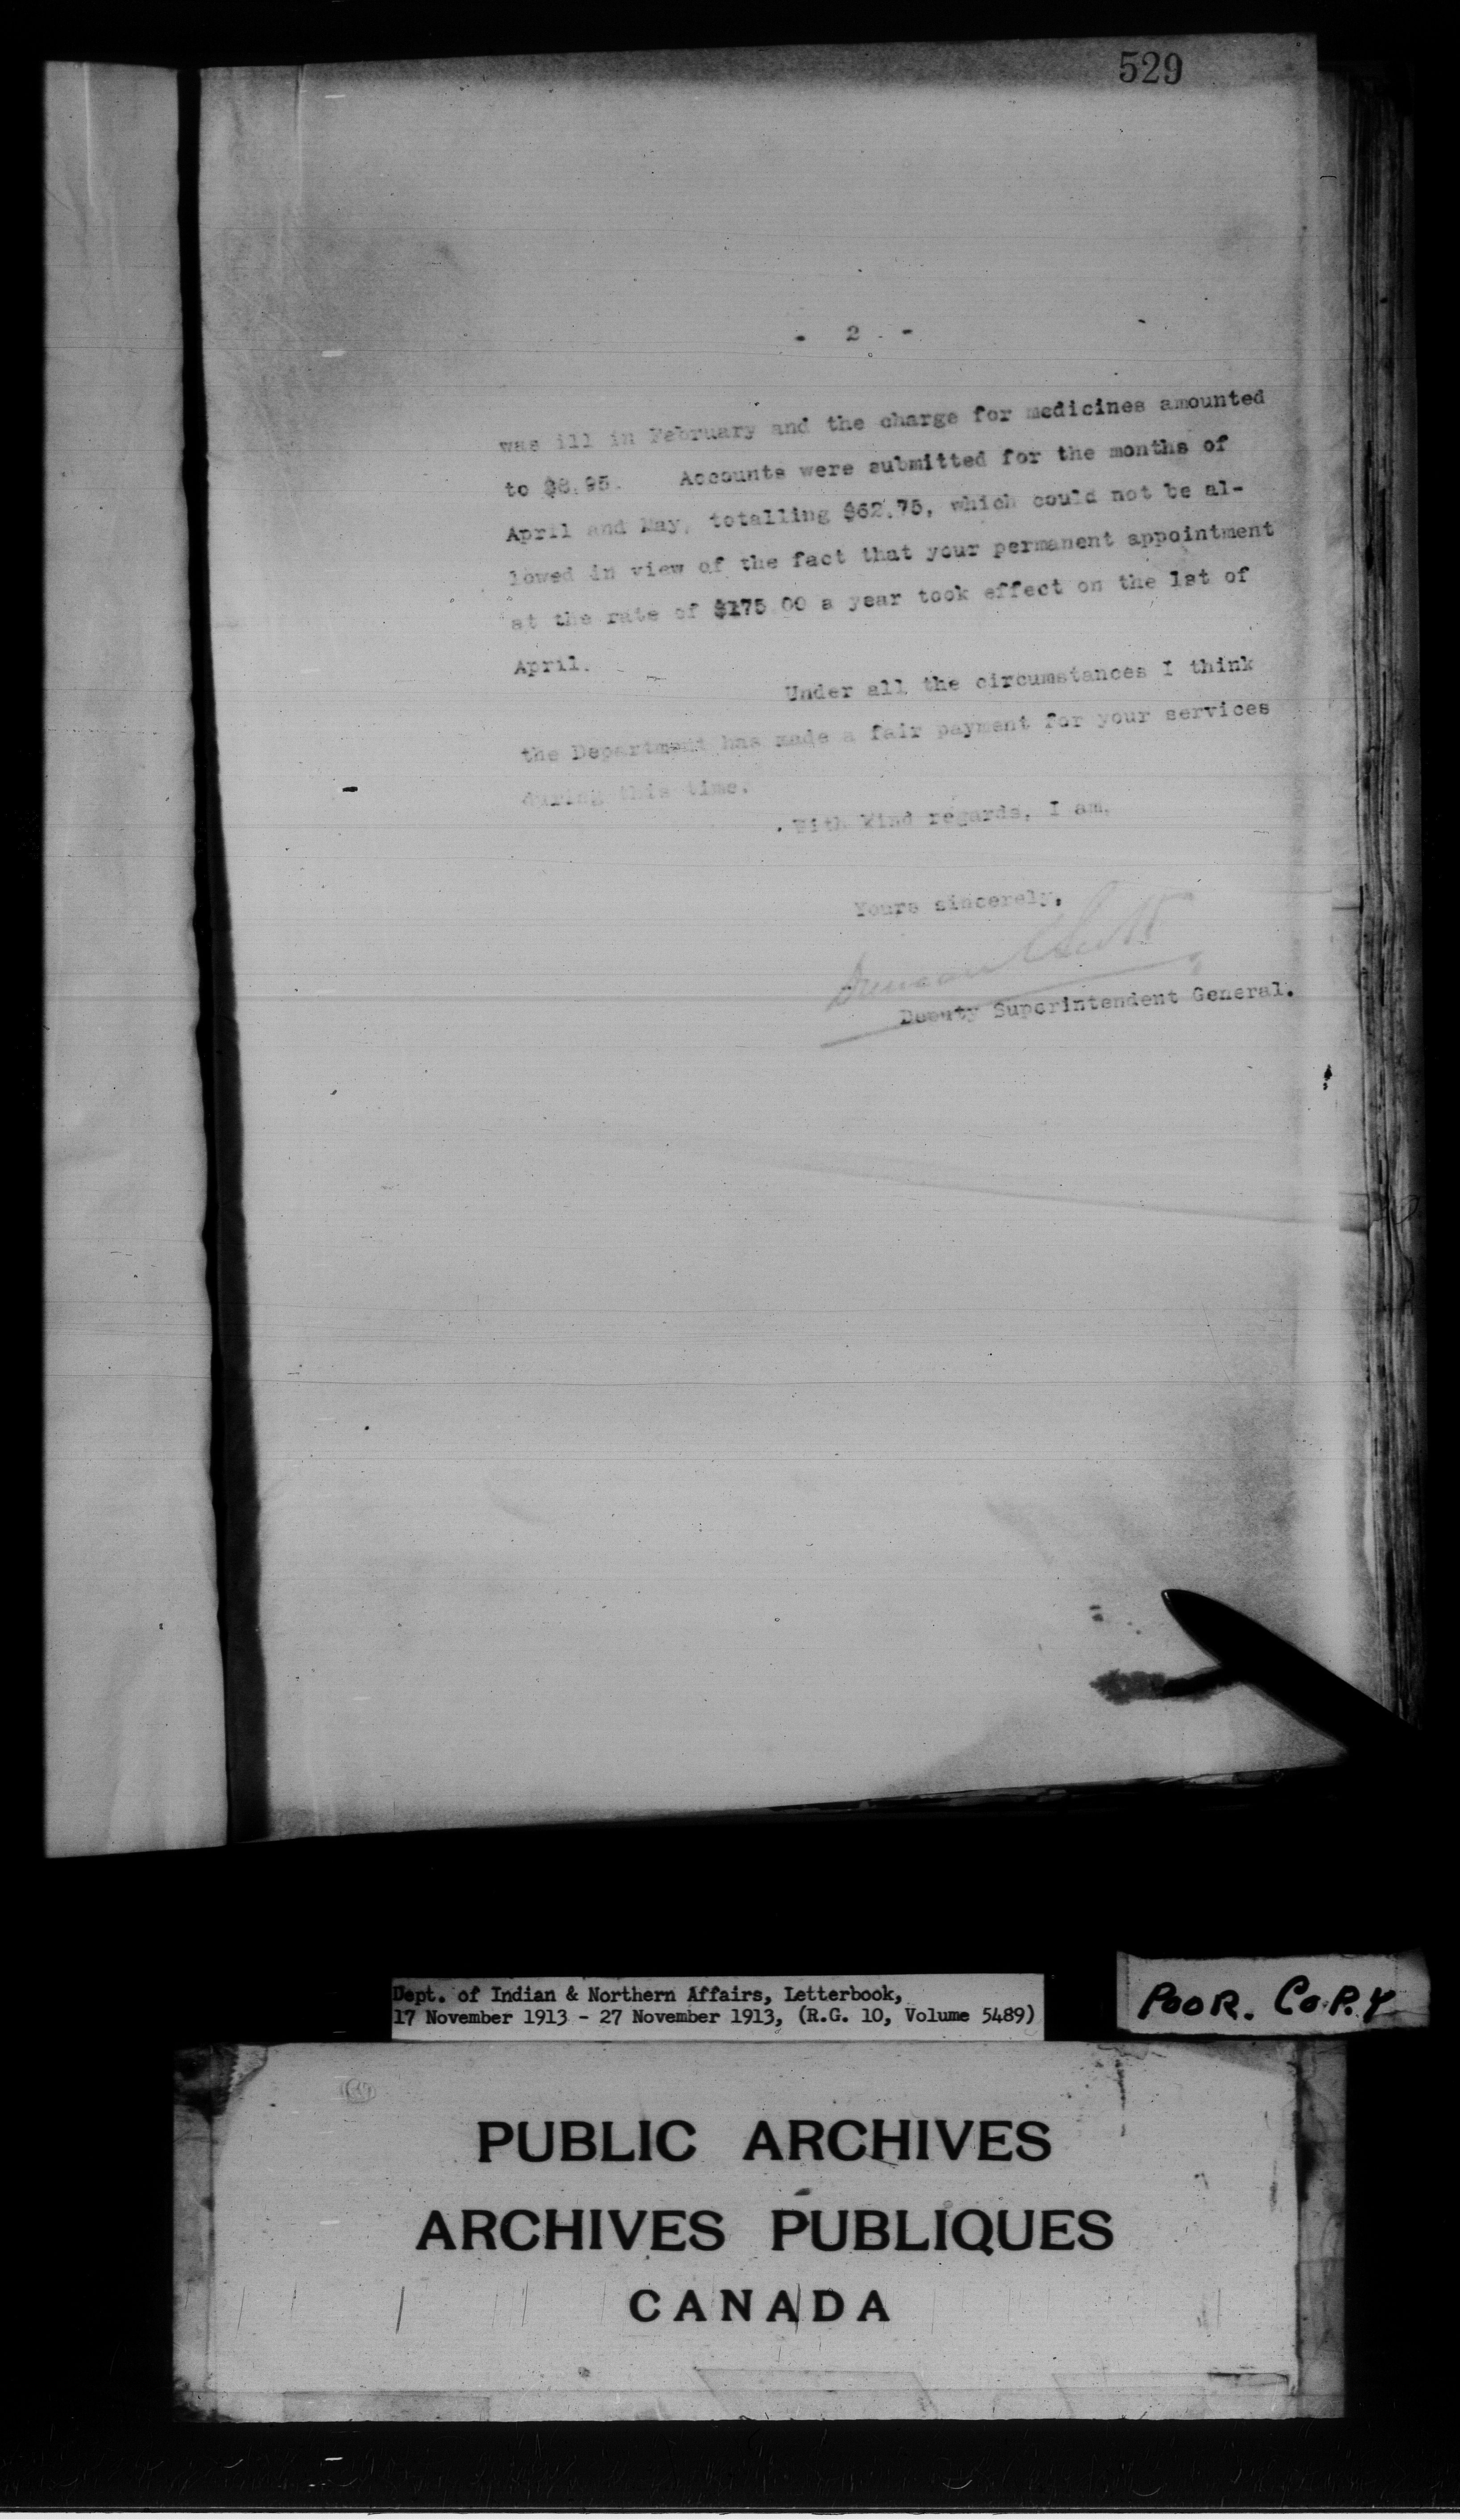 529
- 2 -
was ill in February and the charge for medicines amounted
to $8.95. Accounts were submitted for the months of
April and May, totalling $62.75, which could not be al-
lowed in view of the fact that your permanent appointment
at the rate of $175.00 a year took effect on the 1st of
April.
Under all the circumstances I think
the Department has made a fair payment for your services
during this time.
With kind regards, I am,
Yours sincerely,
Duncan C Scott
Deputy Superintendent General.
Dept. of Indian & Northern Affairs, Letterbook,
17 November 1913 - 27 November 1913, (R.G. 10, Volume 5489)
POOR. COPY
PUBLIC ARCHIVES
ARCHIVES PUBLIQUES
CANADA